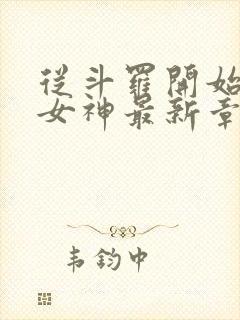 從斗羅開始
女神最新章
韦鈞中